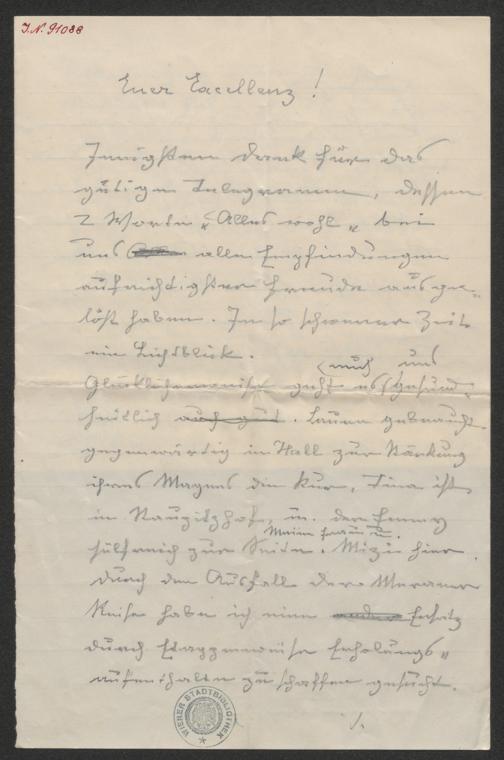 J.N. 91088
Euer Excellenz!
Innigsten Dank für das
gütige Telegramm, dessen
2 Worte „Alles wohl" bei
uns allen Empfindungen
aufrichtigster Freude ausge-
löst haben. In so schwerer Zeit
ein Lichtblick.
Glücklicherweise geht es uns auch gesund-
heitlich auch gut. Laura gebraucht
gegenwärtig in Hall zur Stärkung
ihres Magens die Kur, Tina ist
in, u. der Emmy
hülfreich zur Seite. Meine Frau u. Mizi hier.
Durch den Ausfall der Meraner
Reise habe ich einen Ersatz
durch Etappenweise Erholungs-
aufenthalte zu schaffen gesucht.
./.
WIENER STADTBIBLIOTHEK